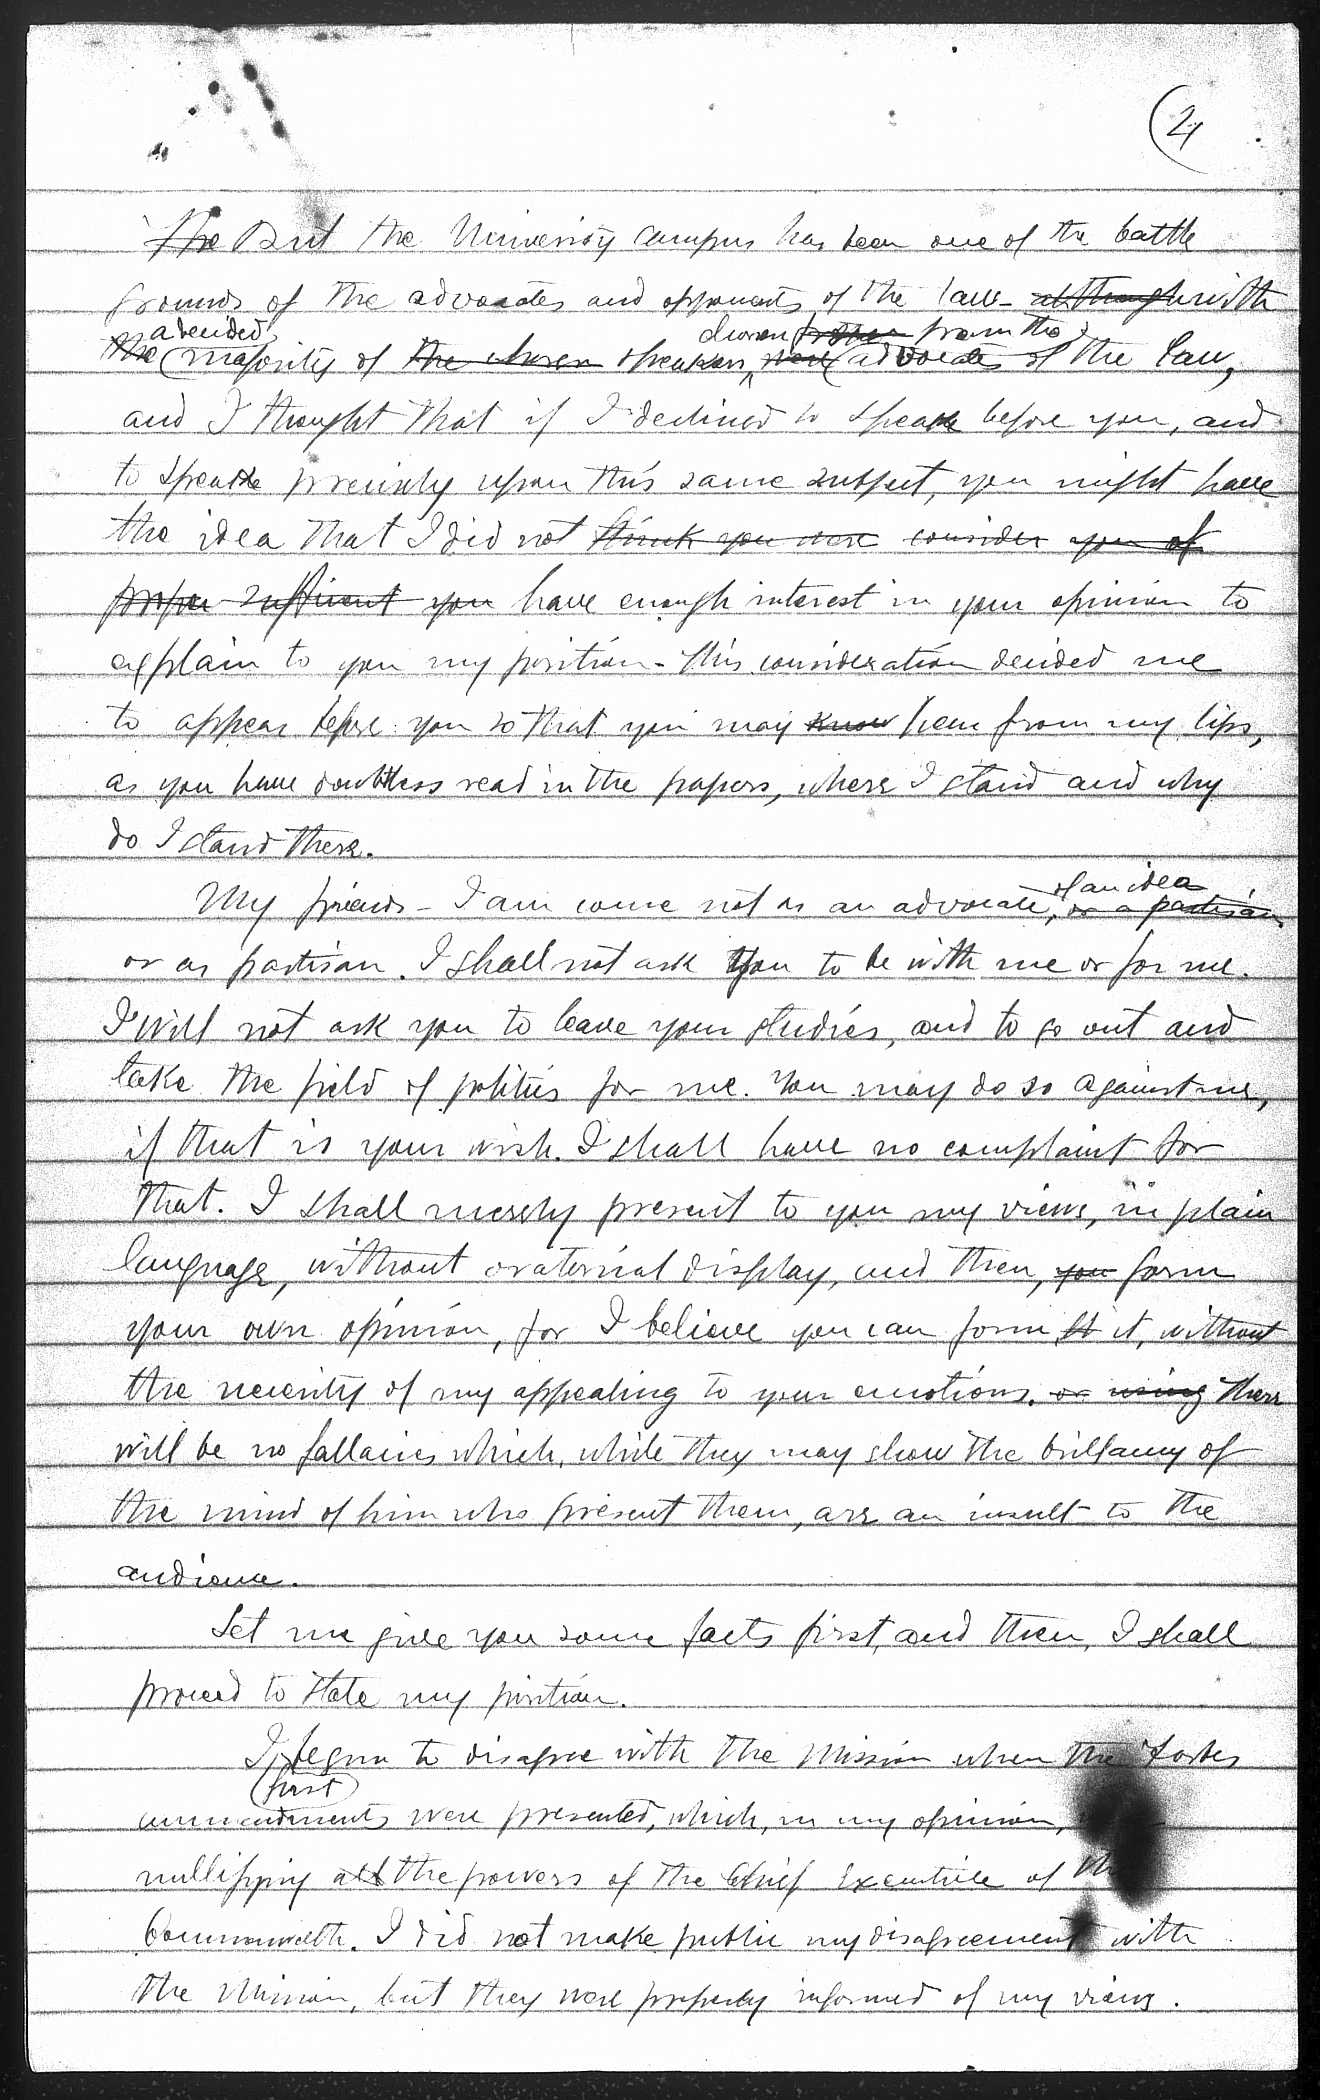 (2)
The But the University campus has been one of the battle
grounds of the advocates and opponents of the law - although with
the a decided majority of the chosen speakers, chosen from the advocates of the law,
and I thought that if I declined to speak before you, and
to speak precisely upon this same subject, you might have
the idea that I did not think you were consider you of
proper sufficient you have enough interest in your opinion to
explain to you my position - this consideration decided me
to appear before you so that you may know hear from my lips,
as you have doubtless read in the papers, where I stand and why
do I stand there.
My friends - I am come not as an advocate, of an idea or a partisan
or as partisan. I shall not ask you to be with me or for me.
I will not ask you to leave your studies, and to go out and
take the field of politics for me. You may do so against me,
if that is your wish. I shall have no complaint for
that. I shall merely present to you my views, in plain
language, without oratorical display, and then, you form
your own opinion, for I believe you can form it, without
the necessity of my appealing to your emotions. or using there
will be no fallacies which, while they may show the brillancy of
the mind of him who present them, are an insult to the
audience.
Let me give you some facts first, and then, I shall
proceed to state my position.
I begun to disagree with the Mission when the Forbes
first
ammendments were presented, which, in my opinion,
nullifying all the powers of the Chief Executive of the
Commonwealth. I did not make public my disagreement with
the Mission, but they were properly informed of my views.